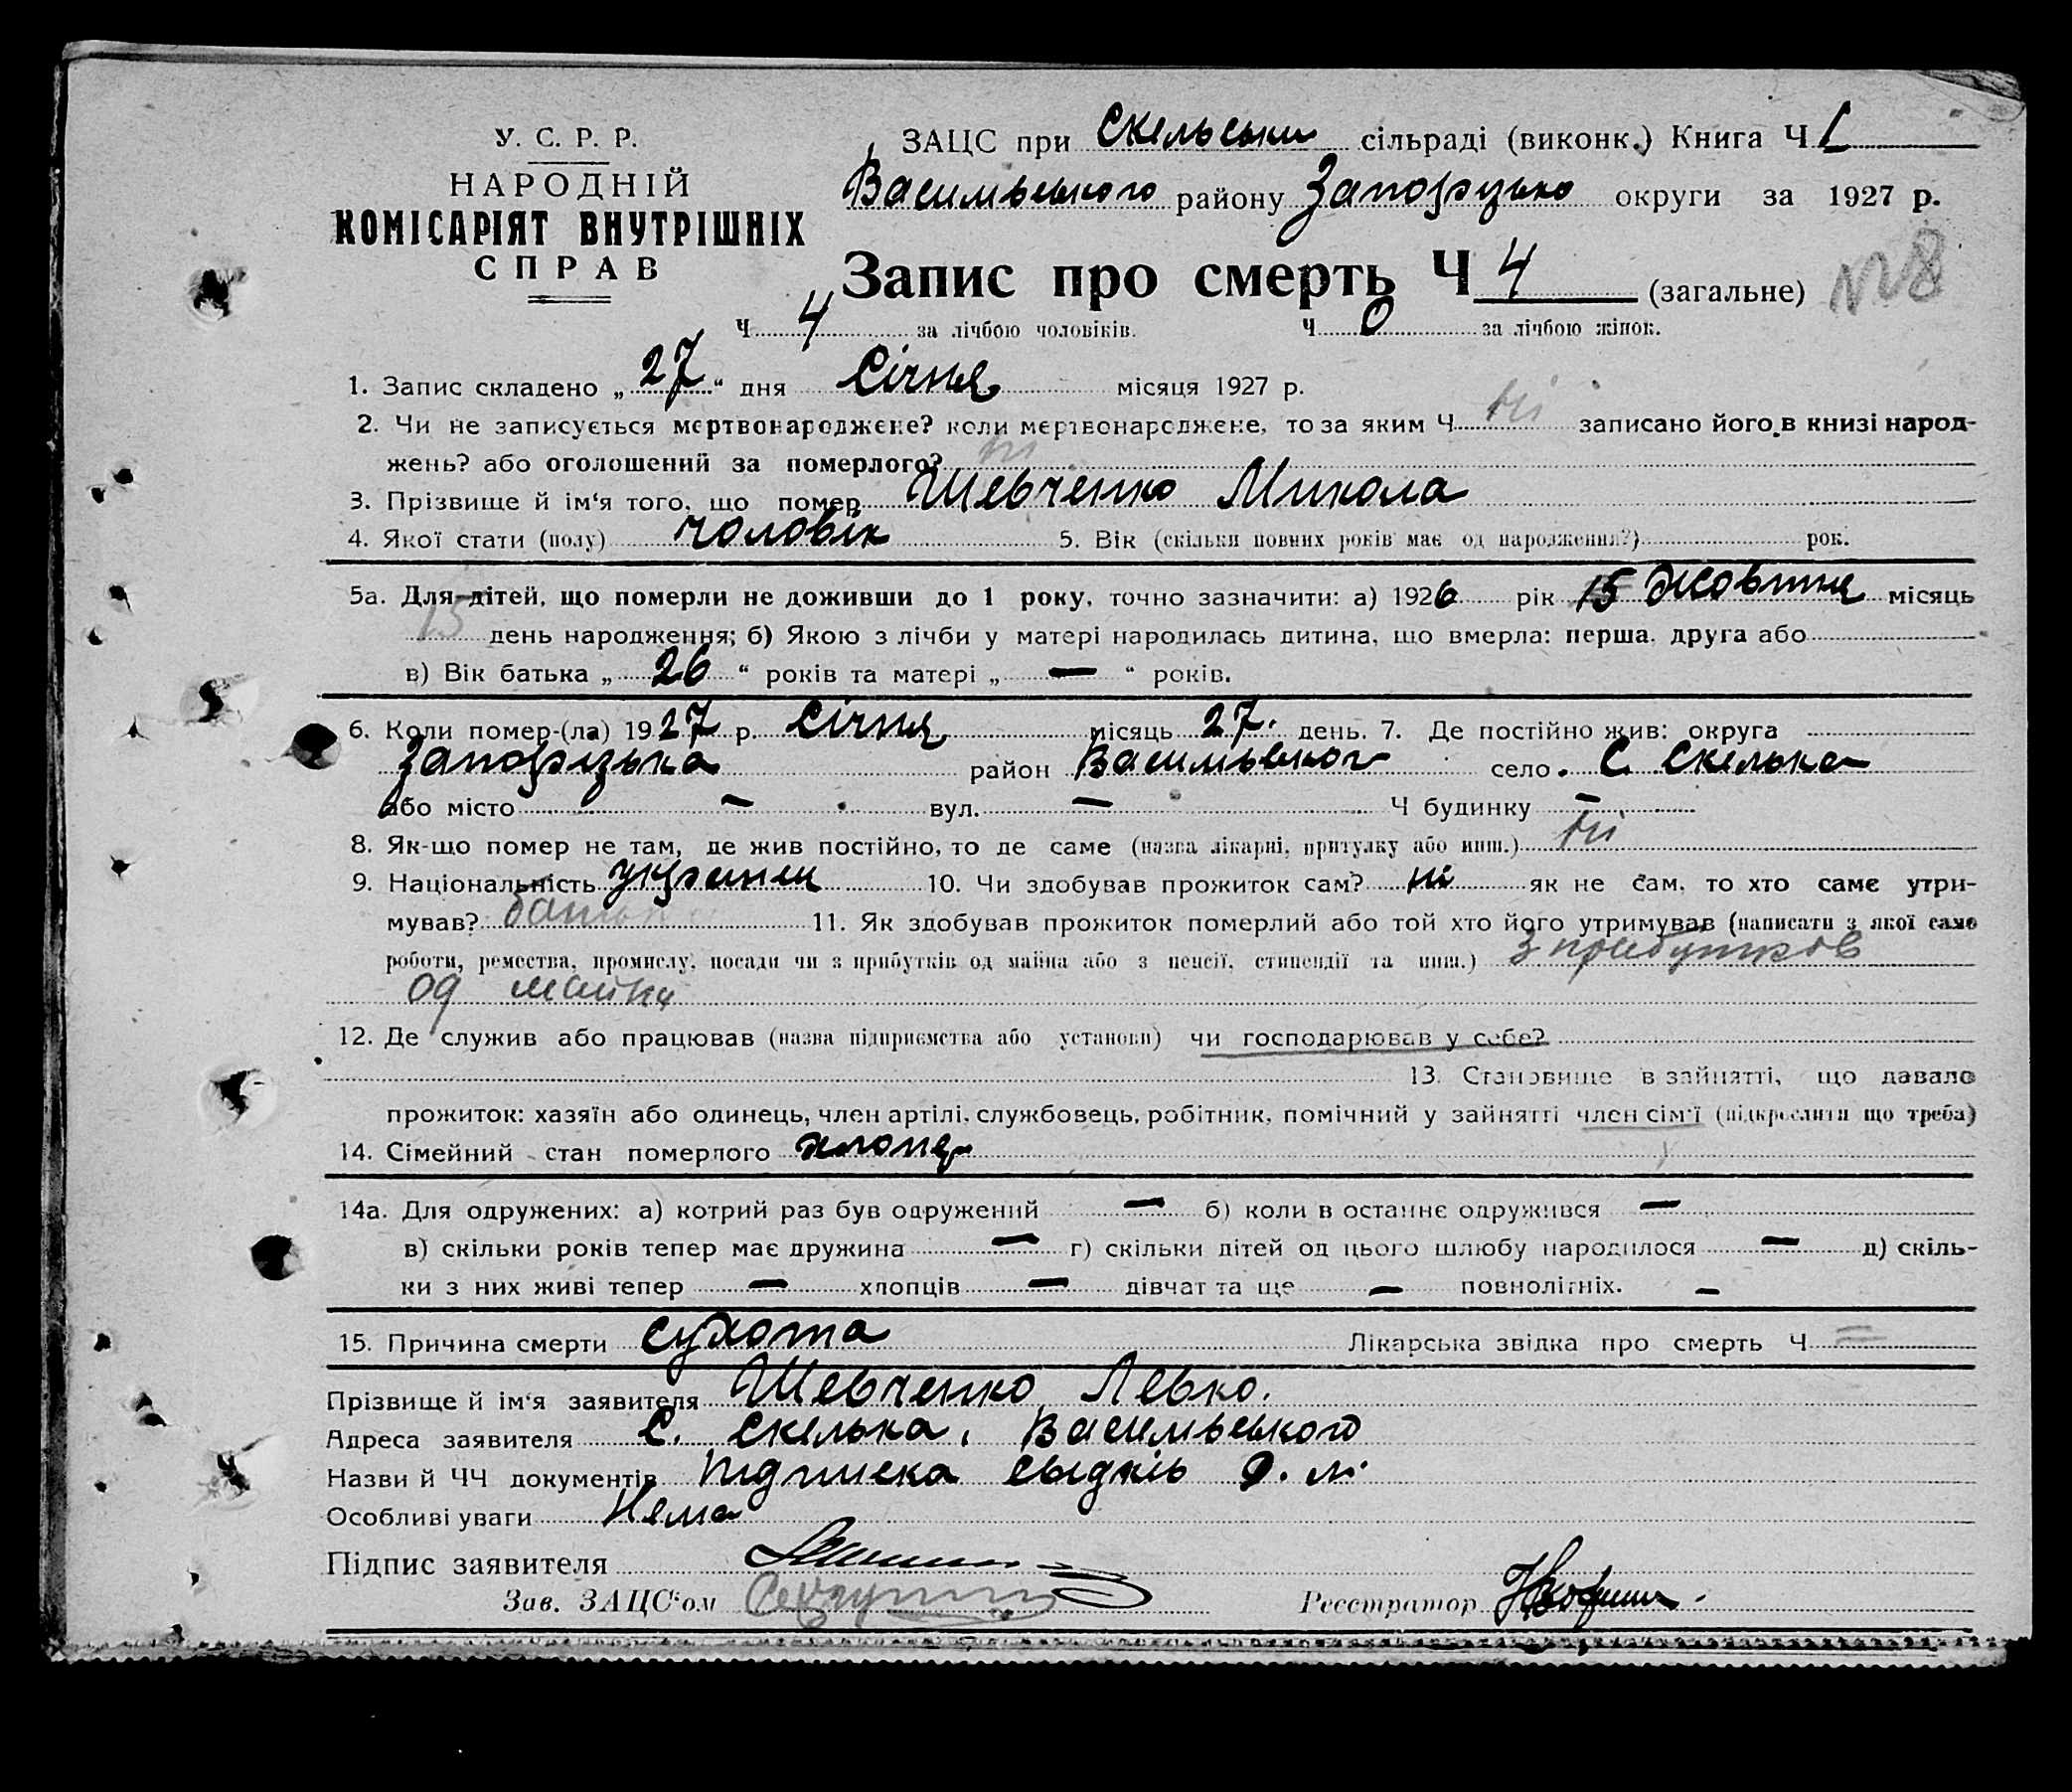 У. С. Р. Р.
НАРОДНІЙ
КОМІСАРІЯТ ВНУТРІШНІХ
СПРАВ
ЗАЦС при Скельськи сільраді (виконк.) Книга Ч I
Васильвського району Запорузько округи за 1927 р.
Запис про смерть Ч 4 (загальне) № 8
Ч 4 за лічбою чоловіків. Ч 0 за лічбою жінок.
1. Запис складено „ 27 “ дня Січня місяця 1927 р.
2. Чи не записується мертвонароджене? коли мертвонароджене, то за яким Ч ні записано його в книзі народ-
жень? або оголошений за померлого? ні
3. Прізвище й ім‘я того, що помер Шевченко Микола
4. Якої стати (полу) чоловік 5. Вік (скільки повних років має од народження?) рок.
5а. Для дітей, що померли не доживши до 1 року, точно зазначити: а) 1926 рік 15 Жовтня місяць
15 день народження; б) Якою з лічби у матері народилась дитина, що вмерла: перша, друга або
в) Вік батька „ 26 “ років та матері „ — “ років.
6. Коли помер-(ла) 1927 р. Січня місяць 27. день. 7. Де постійно жив: округа
Запорізька район Васильвског село С. Скелька
або місто — вул. — Ч будинку —
8. Як-що помер не там, де жив постійно, то де саме (назва лікарні, притулку або инш.) ні
9. Національність українец 10. Чи здобував прожиток сам? ні як не сам, то хто саме утри-
мував? батько 11. Як здобував прожиток померлий або той хто його утримував (написати з якої саме
роботи, ремества, промислу, посади чи з прибутків од майна або з пенсії, стипендії та инш.) З прибутков
од майна
12. Де служив або працював (назва підприємства або установи) чи господарював у себе?
13. Становище в зайнятті, що давало
прожиток: хазяїн або одинець, член артілі, службовець, робітник, помічний у зайнятті член сім‘ї (підкреслити що треба)
14. Сімейний стан померлого хлопец
14а. Для одружених: а) котрий раз був одружений — б) коли в останнє одружився —
в) скільки років тепер має дружина — г) скільки дітей од цього шлюбу народилося — д) скіль-
ки з них живі тепер — хлопців — дівчат та ще — повнолітніх. —
15. Причина смерти сухота Лікарська звідка про смерть Ч =
Прізвище й ім‘я заявителя Шевченко Левко.
Адреса заявителя С. Скелька, Васильвського
Назви й ЧЧ документів підписка свидків
Особливі уваги Нема
Підпис заявителя
Зав. ЗАЦС‘ом
Реєстратор